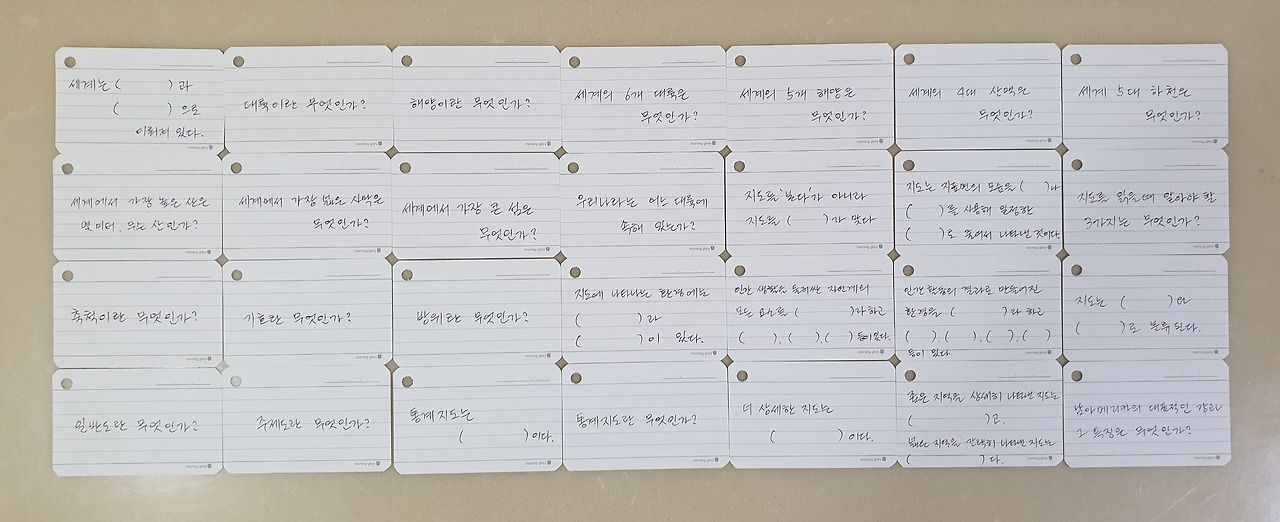 세계는 (          ) 과
(          ) 으로
이뤄져 있다.
morning glory
대륙이란 무엇인가?
morning glory
해양이란 무엇인가?
morning glory
세계의 6개 대륙은
무엇인가?
morning glory
세계의 5개 해양은
무엇인가?
morning glory
세계의 4대 산맥은
무엇인가?
morning glory
세계 5대 하천은
무엇인가?
morning glory
세계에서 가장 높은 산은
몇 미터, 무슨 산인가?
morning glory
세계에서 가장 넓은 사막은
무엇인가?
morning glory
세계에서 가장 큰 섬은
무엇인가?
morning glory
우리나라는 어느 대륙에
속해 있는가?
morning glory
지도를 '본다'가 아니라
지도를 (      )가 맞다
morning glory
지도는 지표면의 모습을 (    )나
(    )를 사용해 일정한
(    )로 줄여서 나타낸 것이다.
morning glory
지도를 읽을 때 알아야 할
3가지는 무엇인가?
morning glory
축척이란 무엇인가?
morning glory
기호란 무엇인가?
morning glory
방위란 무엇인가?
morning glory
지도에 나타나는 환경에는
(          ) 과
(          ) 이 있다.
morning glory
인간 생활을 둘러싼 자연계의
모든 요소를 (          )라 하고
(     ), (     ), (     ) 등이 있다.
morning glory
인간 활동의 결과로 만들어진
환경을 (          ) 라 하고
(    ), (    ), (    ), (    )
등이 있다
morning glory
지도는 (        ) 와
(          )로 분류된다.
morning glory
일반도란 무엇인가?
morning glory
주제도란 무엇인가?
morning glory
통계지도는
(          ) 이다.
morning glory
통계지도란 무엇인가?
morning glory
더 상세한 지도는
(          ) 이다.
morning glory
좁은 지역을 상세히 나타낸 지도는
(          ) 고,
넓은 지역을 간략히 나타낸 지도는
(          ) 다.
morning glory
남아메리카의 대표적인 강과
그 특징은 무엇인가?
morning glory